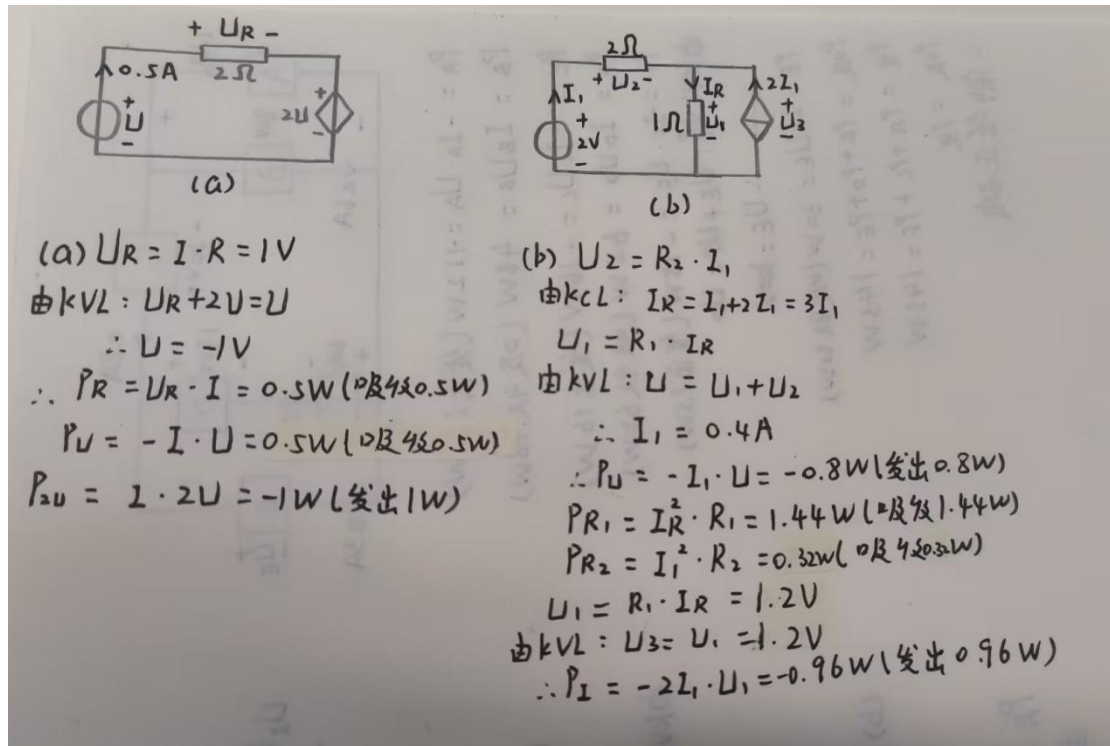 + UR -
2Ω
0.5A
+
U
-
+
2U
-
(a)
2Ω
+ U2 -
I1
+
2V
-
IR
1Ω
+
U1
-
2I1
+
U3
-
(b)
(a) UR = I·R = 1V
由KVL: UR+2U=U
∴ U = -1V
∴ PR = UR·I = 0.5W(吸收0.5W)
PU = -I·U = 0.5W(吸收0.5W)
P2U = I·2U = -1W(发出1W)
(b) U2 = R2·I1
由KCL: IR = I1+2I1 = 3I1
U1 = R1·IR
由KVL: U = U1+U2
∴ I1 = 0.4A
∴ PU = -I1·U = -0.8W(发出0.8W)
PR1 = IR²·R1 = 1.44W(吸收1.44W)
PR2 = I1²·R2 = 0.32W(吸收0.32W)
U1 = R1·IR = 1.2V
由KVL: U3 = U1 = 1.2V
∴ PI = -2I1·U1 = -0.96W(发出0.96W)